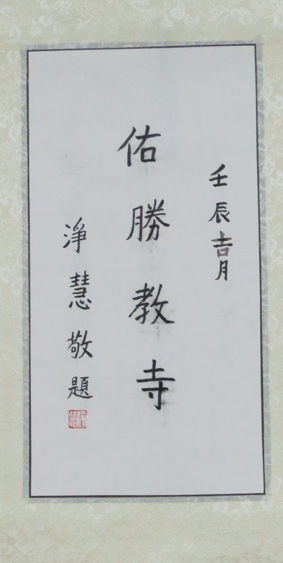 壬辰吉月
佑勝教寺
淨慧敬題